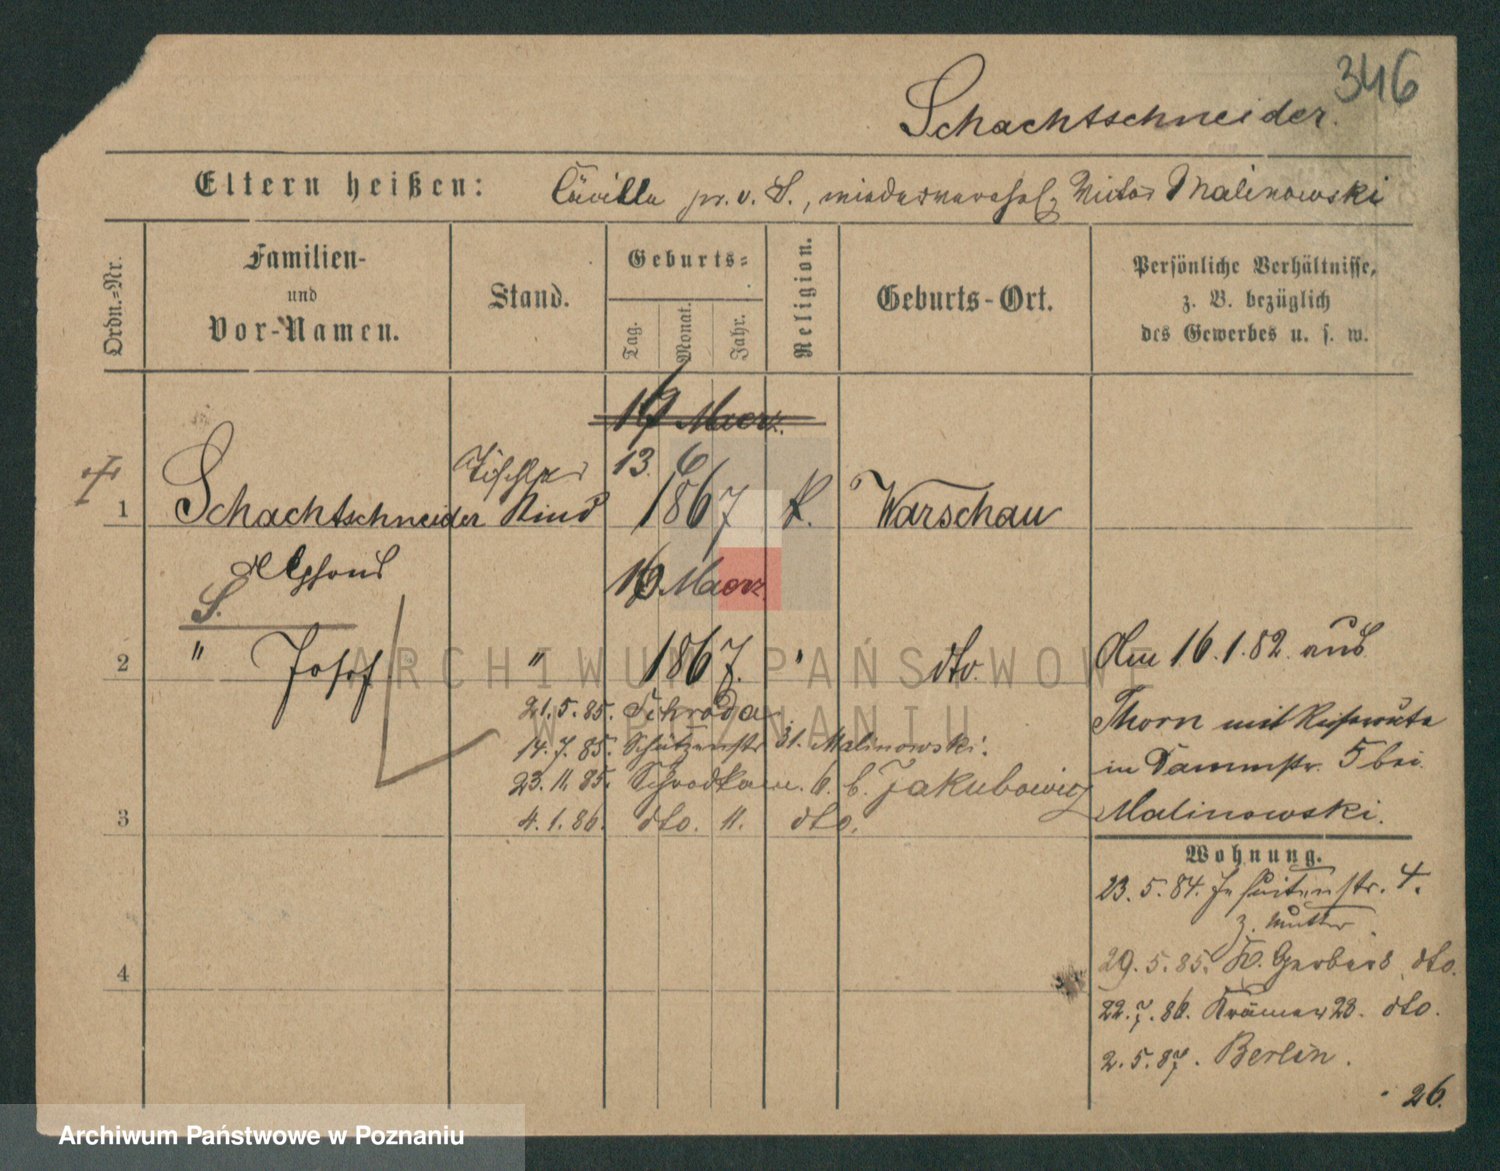 346
Schachtschneider.
Eltern heißen: Cäcilla pr. v. S., wiederverehel. Victor Malinowski
Ordn.=Nr.
Familien-
und
Vor-Namen.
Stand.
Geburts=
Tag.
Monat.
Jahr.
Religion.
Geburts-Ort.
Persönliche Verhältnisse,
z. B. bezüglich
des Gewerbes u. s. w.
Maerz.
Tischler 13. 6
1 Schachtschneider Kind 1867 K. Warschau
Alphons
16 Maerz.
S.
2 " Josef " 1867. " dto.
Am 16.1.82. aus
Thorn mit
in Dammstr. 5 bei
Malinowski.
21.5.85. Schroda
14.7.85. Schützenstr 31. Malinowski.
23.11.85. b. Jakubowicz
3 4.1.86. dto. 11. dto.
Wohnung.
23.5.84. Jesuitenstr. 4.
z. Mutter.
29.5.85. Gr. Gerber 8 dto.
4
22.7.86. Krämer 23. dto.
2.5.87. Berlin.
26.
ARCHIWUM PAŃSTWOWE
W POZNANIU
Archiwum Państwowe w Poznaniu